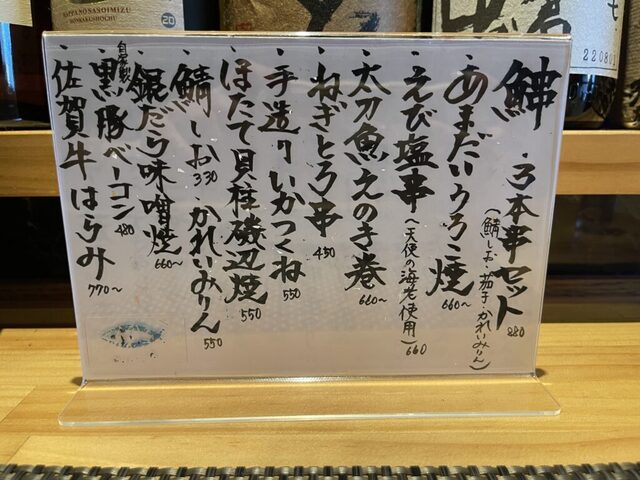 鯡
・3本串セット 880
(鯖しお・茄子・かれいみりん)
・あまだいうろこ焼 660〜
・えび塩串(天使の海老使用) 660
・太刀魚えのき巻 660〜
・ねぎとろ串 450
・手造りいかつくね 550
・ほたて貝柱磯辺焼 550
・鯖しお330・かれいみりん 550
・銀だら味噌焼 660〜
・自家製黒豚ベーコン 480
・佐賀牛はらみ 770〜
HONKAKUSHOCHU
20
220801